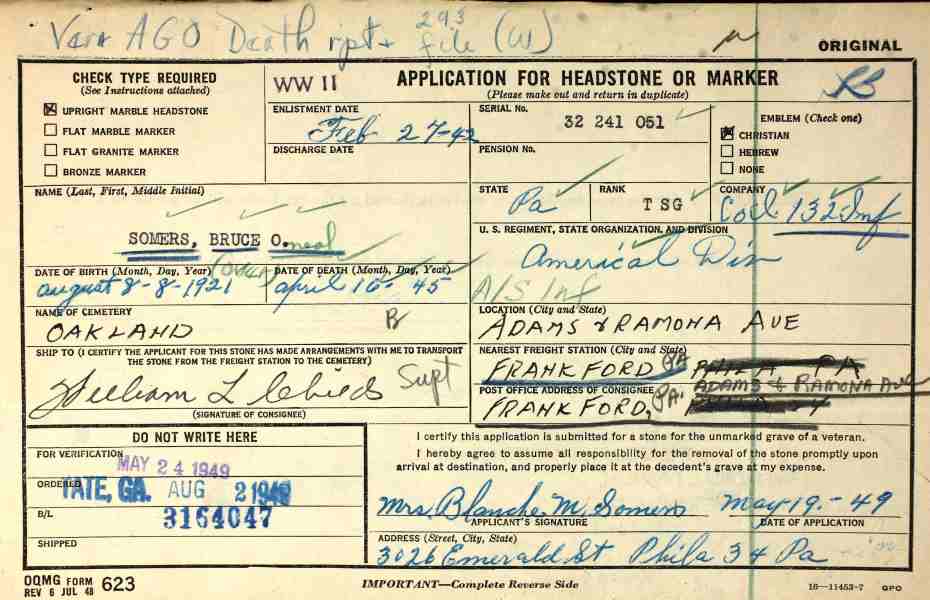 Verr AGO Death rpt + 293 file (W)
ORIGINAL
CHECK TYPE REQUIRED
(See Instructions attached)
UPRIGHT MARBLE HEADSTONE
FLAT MARBLE MARKER
FLAT GRANITE MARKER
BRONZE MARKER
WW II
APPLICATION FOR HEADSTONE OR MARKER
(Please make out and return in duplicate)
ENLISTMENT DATE
Feb 27-42
DISCHARGE DATE
SERIAL No.
32 241 051
PENSION No.
EMBLEM (Check one)
CHRISTIAN
HEBREW
NONE
NAME (Last, First, Middle Initial)
SOMERS, BRUCE O.neal
STATE
Pa
RANK
TSG
COMPANY
Co L 132 Inf
U. S. REGIMENT, STATE ORGANIZATION, AND DIVISION
Americal Div
A/S Inf
DATE OF BIRTH (Month, Day, Year)
august 8-8-1921
DATE OF DEATH (Month, Day, Year)
april 16- 45
NAME OF CEMETERY
OAKLAND B
LOCATION (City and State)
ADAMS & RAMONA AVE
SHIP TO (I CERTIFY THE APPLICANT FOR THIS STONE HAS MADE ARRANGEMENTS WITH ME TO TRANSPORT
THE STONE FROM THE FREIGHT STATION TO THE CEMETERY)
William L Childs Supt
(SIGNATURE OF CONSIGNEE)
NEAREST FREIGHT STATION (City and State)
FRANKFORD PA PHILA PA
POST OFFICE ADDRESS OF CONSIGNEE
ADAMS & RAMONA AVE
FRANKFORD, PA.
DO NOT WRITE HERE
FOR VERIFICATION
MAY 24 1949
ORDERED
TATE, GA. AUG 2 1949
B/L
3164047
SHIPPED
I certify this application is submitted for a stone for the unmarked grave of a veteran.
I hereby agree to assume all responsibility for the removal of the stone promptly upon
arrival at destination, and properly place it at the decedent's grave at my expense.
Mrs. Blanche M. Somers May 19.-49
APPLICANT'S SIGNATURE
DATE OF APPLICATION
ADDRESS (Street, City, State)
3026 Emerald St Phila 34 Pa
OQMG FORM
REV 6 JUL 48 623
IMPORTANT—Complete Reverse Side
16—11453-7 GPO